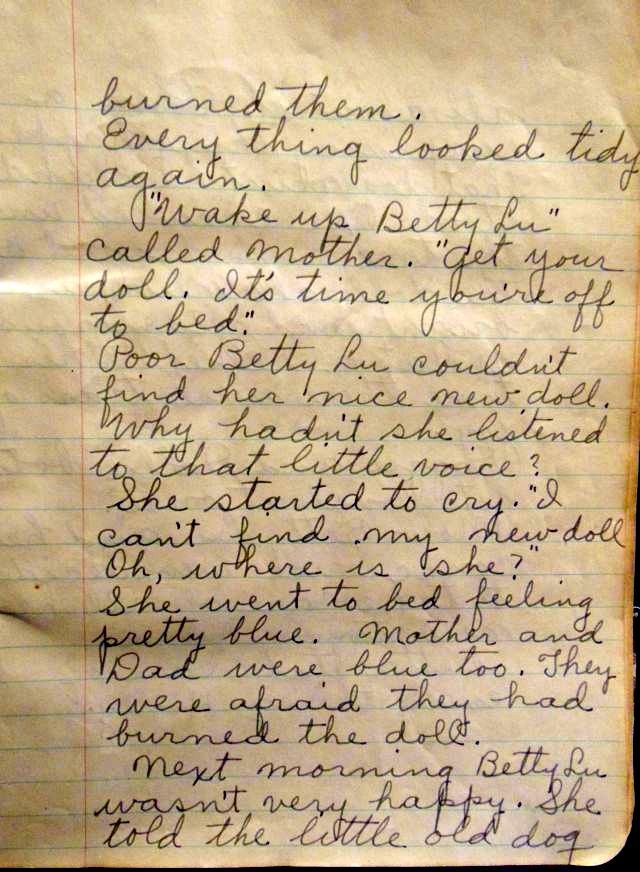 burned them.
Every thing looked tidy
again.
"Wake up Betty Lu"
called Mother. "Get your
doll. It's time you're off
to bed."
Poor Betty Lu couldn't
find her nice new doll.
Why hadn't she listened
to that little voice?
She started to cry. "I
can't find my new doll
Oh, where is she?"
She went to bed feeling
pretty blue. Mother and
Dad were blue too. They
were afraid they had
burned the doll.
Next morning Betty Lu
wasn't very happy. She
told the little old dog